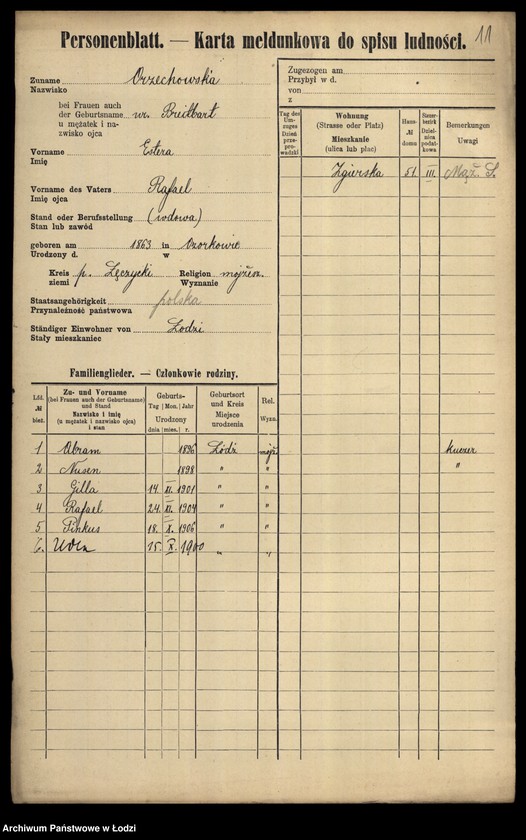 Personenblatt. — Karta meldunkowa do spisu ludności. 11
Zuname Orzechowska
Nazwisko
bei Frauen auch
der Geburtsname
u mężatek i na-
zwisko ojca
Breitbart
Vorname Estera
Imię
Vorname des Vaters Rafael
Imię ojca
Stand oder Berufsstellung (wdowa)
Stan lub zawód
geboren am 1863 in Ozorkowie
Urodzony d. w
Kreis p. Łęczycki Religion mojżesz.
ziemi Wyznanie
Staatsangehörigkeit polska
Przynależność państwowa
Ständiger Einwohner von Łodzi
Stały mieszkaniec
Zugezogen am
Przybył w d.
von
z
Tag des Um-
zuges
Dzień
prze-
prowadzki
Wohnung
(Strasse oder Platz)
Mieszkanie
(ulica lub plac)
Haus-
№
domu
Steuer-
bezirk
Dziel-
nica
podat-
kowa
Bemerkungen
Uwagi
Zgierska 51. III. Mąż. S.
Familienglieder. — Członkowie rodziny.
Lfd.
№
bież.
Zu- und Vorname
(bei Frauen auch der Geburtsname)
und Stand
Nazwisko i imię
(u mężatek i nazwisko ojca)
i stan
Geburts-
Tag Mon. Jahr
Urodzony
dnia mies. r.
Geburtsort
und Kreis
Miejsce
urodzenia
Rel.
Wyzn.
1 Abram 1896 Łódź mojż. kuzer
2 Nusen 1898 " " "
3 Gilla 14. XI. 1901 " "
4 Rafael 24. XI. 1904 " "
5 Pinkus 18. X. 1906 " "
6. 15. X. 1900 " "
Archiwum Państwowe w Łodzi